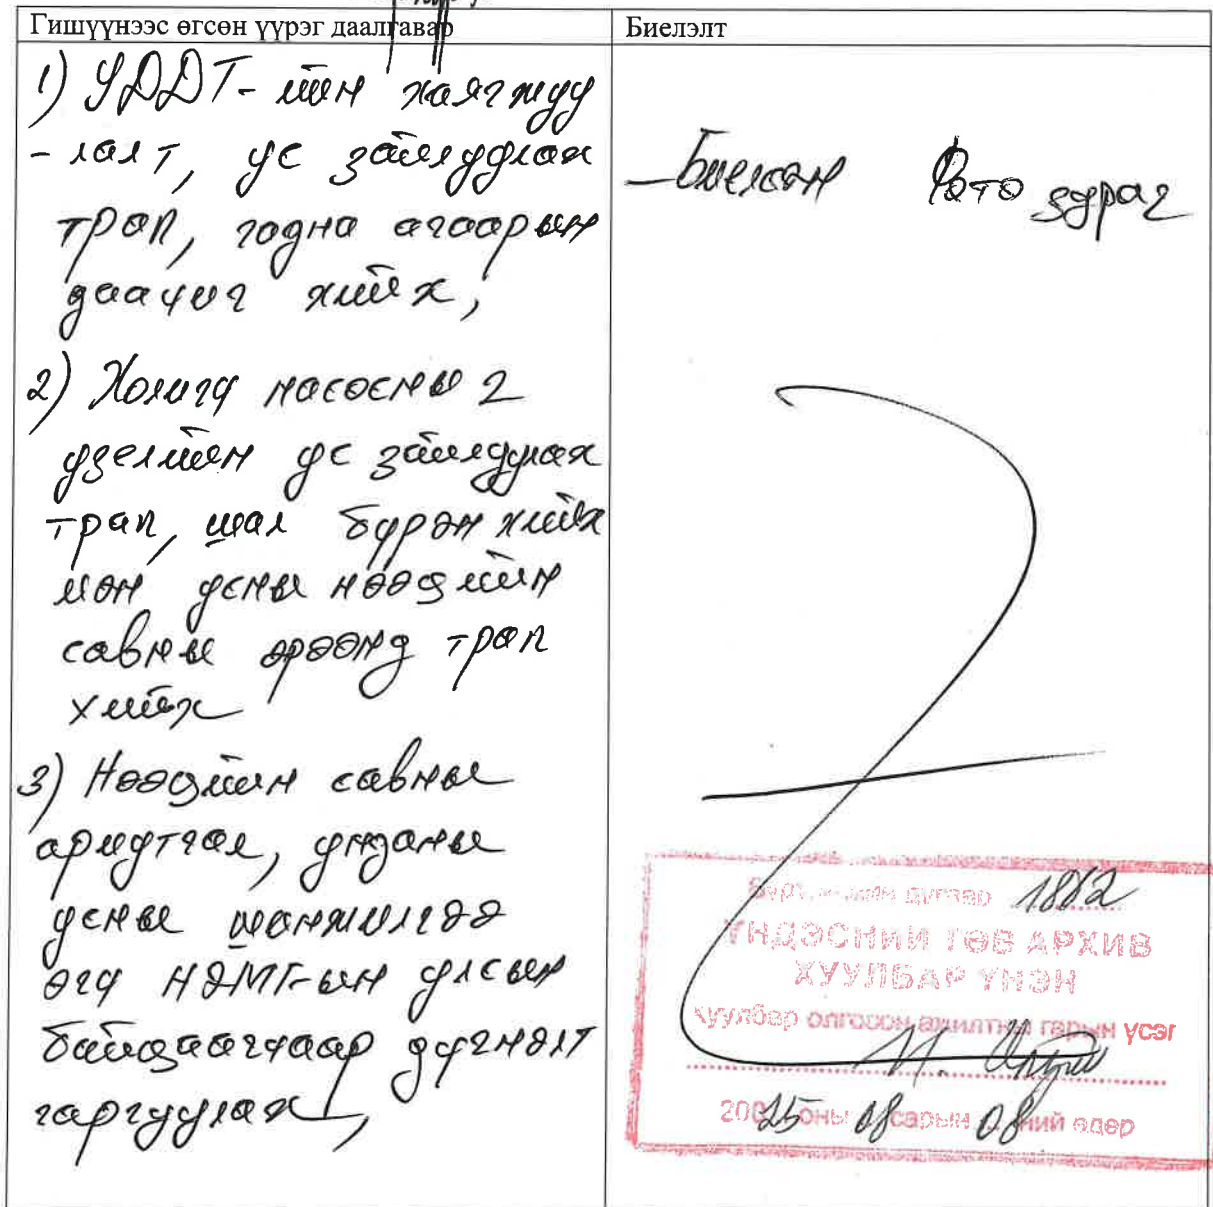 Гишүүнээс өгсөн үүрэг даалгавар
Биелэлт
1) УДДТ-ийн хаягжуу
-лалт, ус зайлуулах
трап, гадна агаарын
даачиг хийх,
2) Холигч насосны 2
узелийн ус зайлуулах
трап, шал бүрэн хийх
мөн усны нөөцийн
савны өрөөнд трап
хийх
3) Нөөцийн савны
ариутгал, ундны
усны шинжилгээ
өгч НЭМГ-ын улсын
байцаагчаар дүгнэлт
гаргуулах,
-Биелсэн Фото зураг
дугаар 1862
ҮНДЭСНИЙ ТӨВ АРХИВ
ХУУЛБАР ҮНЭН
Хуулбар олгосон ажилтны гарын үсэг
2025 оны 08 сарын 08 ний өдөр